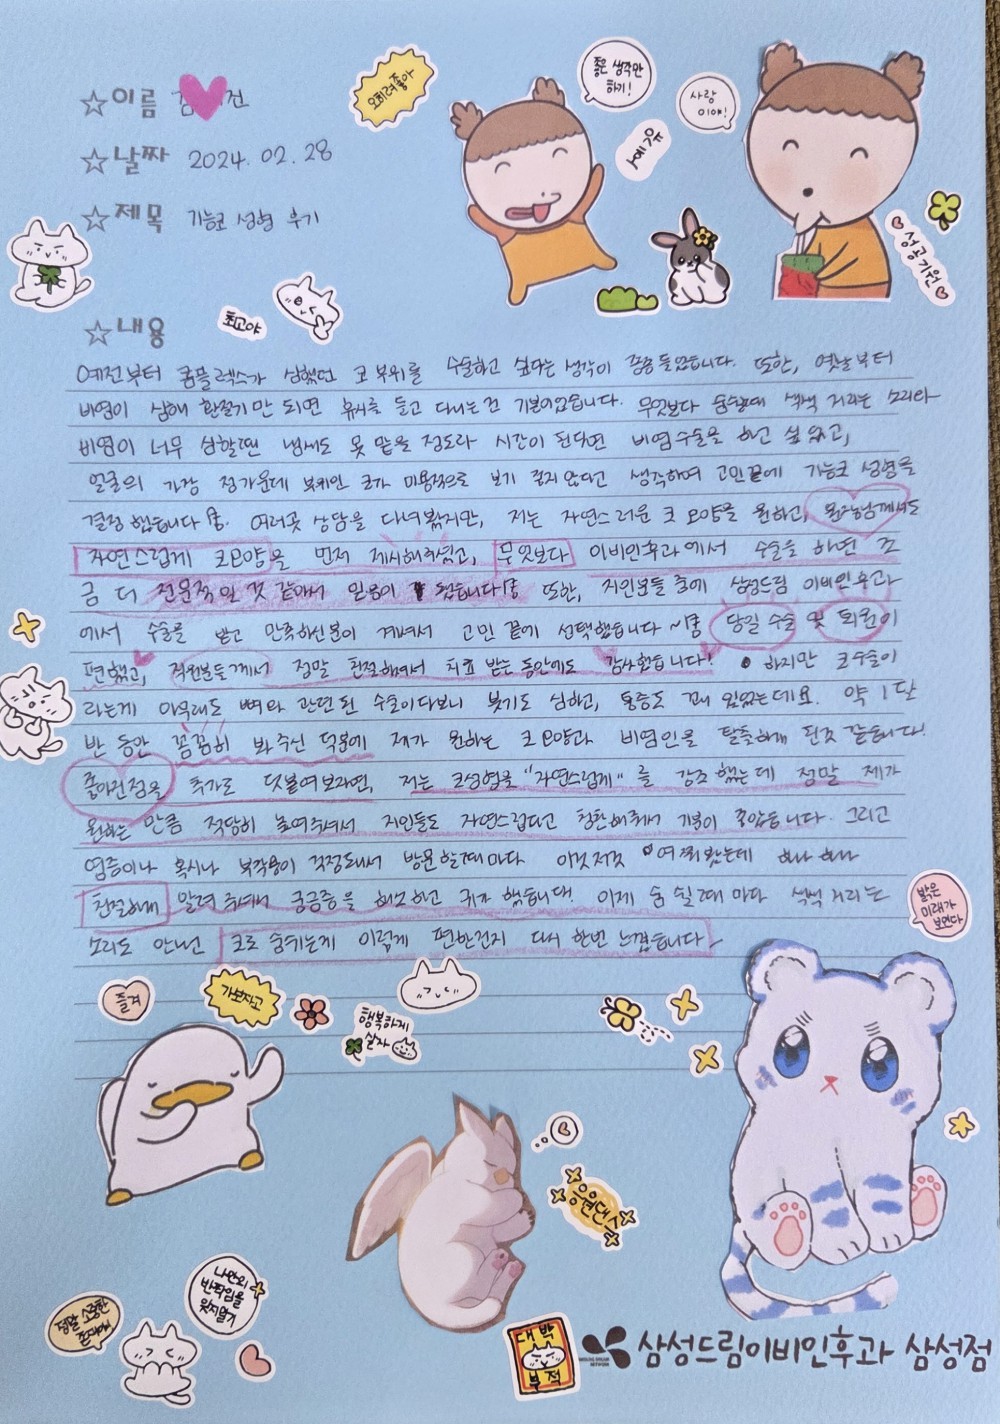 ☆이름 김♥건
오히려 좋아
좋은 생각만 하기!
사랑이야!
☆날짜 2024. 02. 28
☆제목 기능코 성형 후기
성공기원
최고야
☆내용
예전부터 콤플렉스가 심했던 코 부위를 수술하고 싶다는 생각이 종종 들었습니다. 또한, 옛날부터
비염이 심해 환절기만 되면 휴지를 들고 다니는건 기본이었습니다. 무엇보다 숨쉴때 색색 거리는 소리와
비염이 너무 심할땐 냄새도 못 맡을 정도라 시간이 된다면 비염수술을 하고 싶었고,
얼굴의 가장 정가운데 부위인 코가 미용적으로 보기 좋지 않다고 생각하여 고민끝에 기능코 성형을
결정했습니다. 여러곳 상담을 다녀봤지만, 저는 자연스러운 코 모양을 원하고, 원장님께서도
자연스럽게 코모양을 먼저 제시해주셨고, 무엇보다 이비인후과에서 수술을 하면 조
금 더 전문적인 것 같아서 믿음이 갔습니다 또한, 지인분들 중에 삼성드림 이비인후과
에서 수술을 받고 만족하신분이 계셔서 고민 끝에 선택했습니다~ 당일 수술 및 퇴원이
편했고, 직원분들께서 정말 친절해서 치료 받는 동안에도 감사했습니다! 하지만 코수술이
라는게 아무래도 뼈와 관련된 수술이다보니 붓기도 심하고, 통증도 꽤 있었는데요. 약 1달
반 동안 꼼꼼히 봐주신 덕분에 제가 원하는 코모양과 비염인을 탈출하게 된것 같습니다!
좋아진점을 추가로 덧붙여보자면, 저는 코성형을 "자연스럽게" 를 강조했는데 정말 제가
원하는 만큼 적당히 높여주셔서 지인들도 자연스럽다고 칭찬해줘서 기분이 좋았습니다. 그리고
염증이나 혹시나 부작용이 걱정돼서 방문할때마다 이것저것 여쭤봤는데 하나 하나
친절하게 알려주셔서 궁금증을 해소하고 귀가 했습니다! 이제 숨 쉴 때 마다 색색 거리는
소리도 안나고 코로 숨쉬는게 이렇게 편한건지 다시 한번 느꼈습니다
밝은 미래가 보인다
즐겨
가보자고
행복하게 살자
응원댄스
나만의 반짝임을 잊지말기
정말 소중한 존재야
대박
부적
삼성드림이비인후과 삼성점